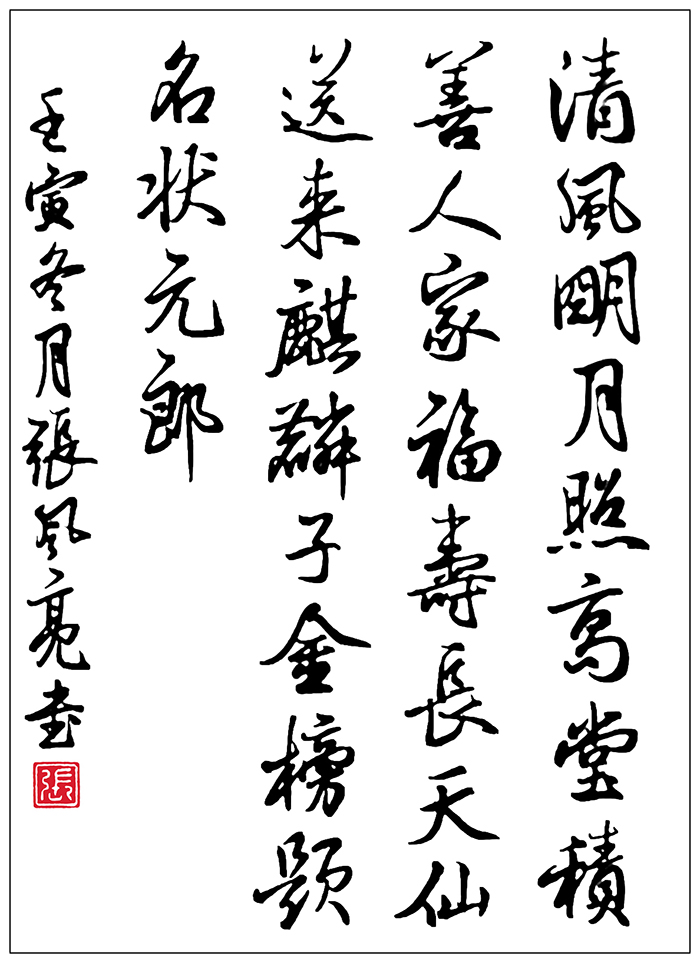 清風明月照高堂積
善人家福壽長天仙
送来麒麟子金榜题
名状元郎
壬寅冬月張风亮书
張